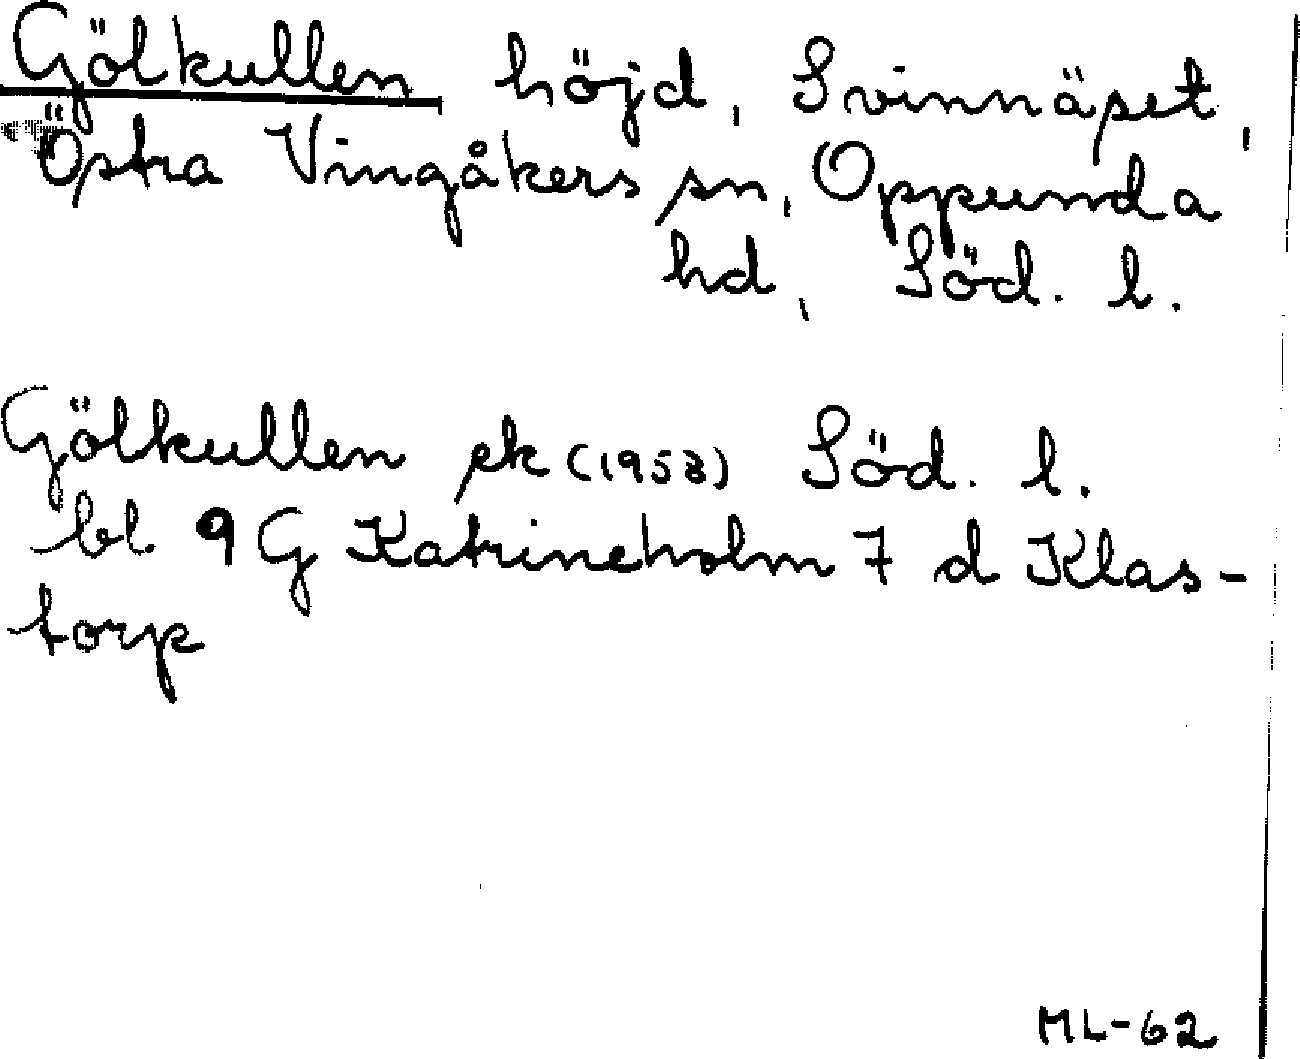 Gölkullen höjd, Svinnäset,
Östra Vingåkers sn, Oppunda
hd, Söd. l.
Gölkullen ek (1953) Söd. l.
bl. 9 G Katrineholm 7 d Klas-
torp
ML-62